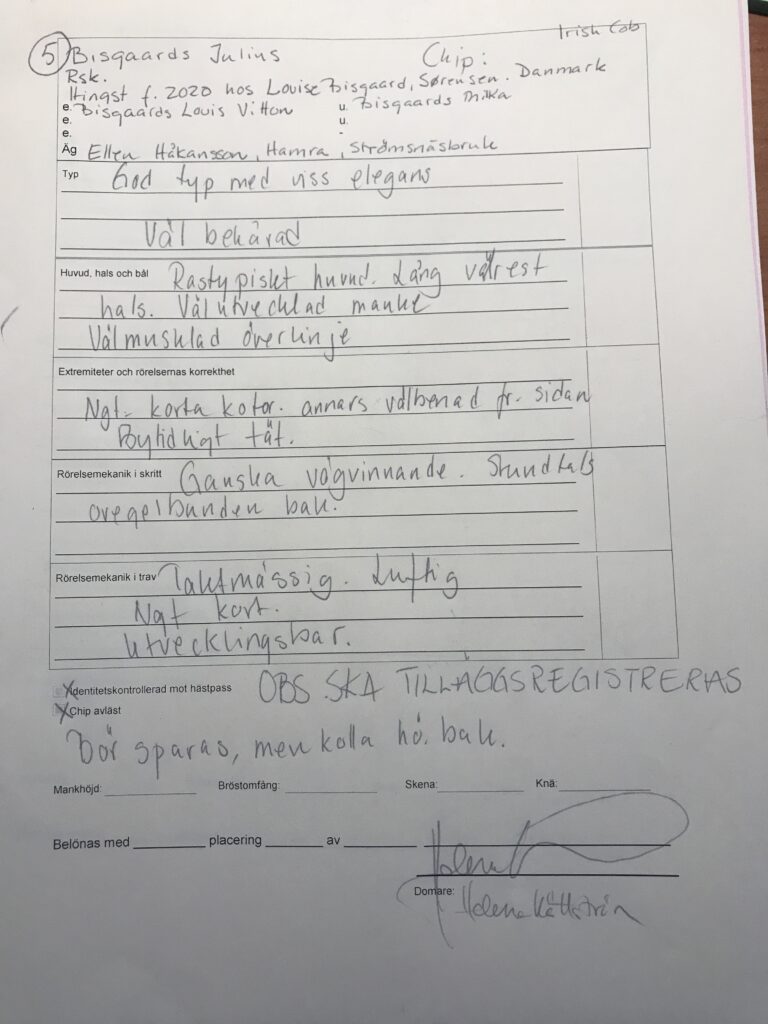 Irish Cob
5 Bisgaards Julius Chip:
Rsk.
Hingst f. 2020 hos Louise Bisgaard, Sørensen. Danmark
e. Bisgaards Louis Vitton u. Bisgaards
e. u.
e. -
Äg Ellen Håkansson, Hamra, Strömsnäsbruk
Typ God typ med viss elegans
Väl behårad
Huvud, hals och bål Rastypiskt huvud. Lång välrest
hals. Välutvecklad manke
Välmusklad överlinje
Extremiteter och rörelsernas korrekthet
Ngt korta kotor. annars välbenad fr. sidan
tåt.
Rörelsemekanik i skritt Ganska vägvinnande. Stundtals
oregelbunden bak.
Rörelsemekanik i trav Taktmässig. Luftig
Ngt kort.
Utvecklingsbar.
X Identitetskontrollerad mot hästpass OBS SKA TILLÄGGSREGISTRERAS
X Chip avläst
Bör sparas, men kolla hö. bak.
Mankhöjd: Bröstomfång: Skena: Knä:
Belönas med placering av
Helena
Domare: Helena